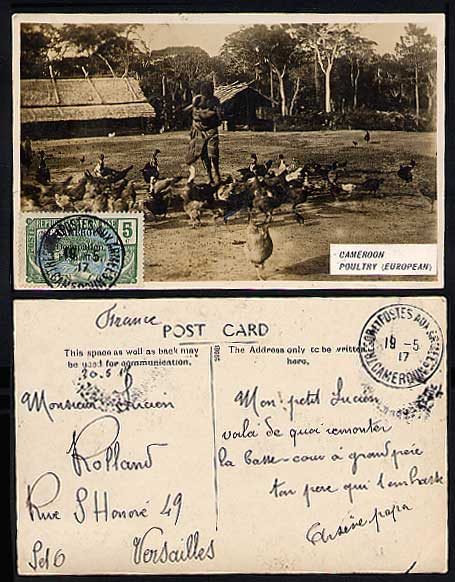 CAMEROON
POULTRY (EUROPEAN)
5
Occupation
19 - 5
17
France
POST CARD
This space as well as back may
be used for communication.
The Address only to be written
here.
TRESOR ET POSTES AUX ARMEES
19 - 5
17
CAMEROUN
20.5.17
Monsieur Lucien
Rolland
Rue St Honoré 49
Versailles
Mon petit Lucien
voilà de quoi remonter
la basse-cour à grand père
ton père qui t'embrasse
Arsène papa